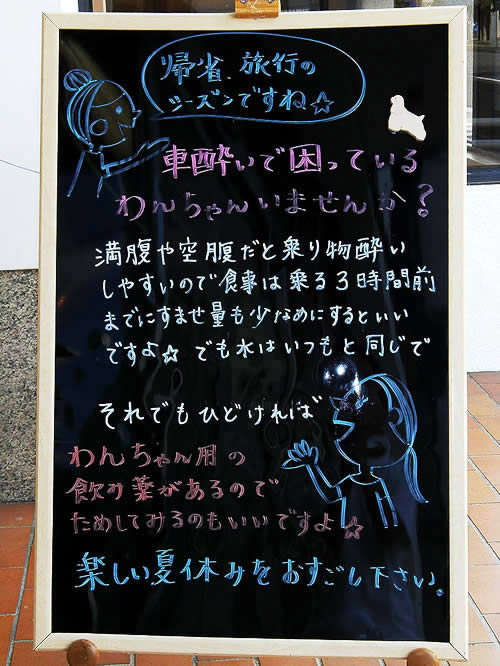 帰省、旅行の
シーズンですね☆
車酔いで困っている
わんちゃんいませんか?
満腹や空腹だと乗り物酔い
しやすいので食事は乗る3時間前
までにすませ量も少なめにするといい
ですよ☆でも水はいつもと同じで
それでもひどければ
わんちゃん用の
飲み薬があるので
ためしてみるのもいいですよ☆
楽しい夏休みをおすごし下さい。